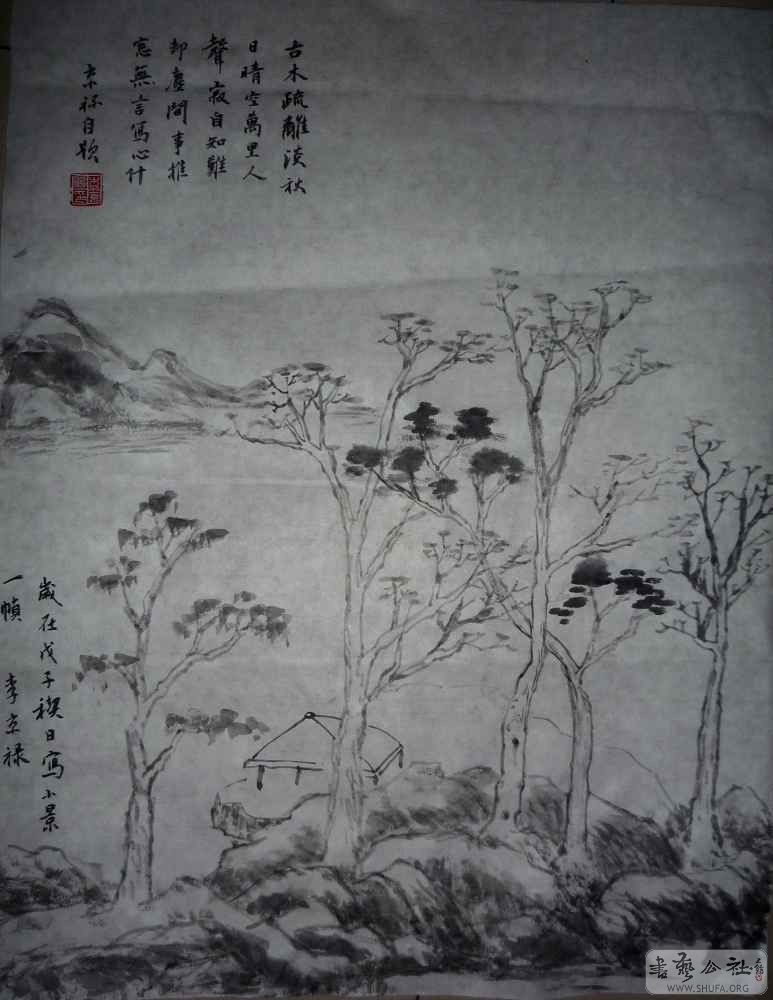 古木疏離淡秋
日晴空萬里人
聲寂自知難
却塵間事推
窓無言寫心什
京祿自題
歲在戊子禊日寫小景
一幀 李京祿
書藝公社
WWW.SHUFA.ORG